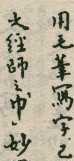 用毛筆寫字已
大經師之巾妙